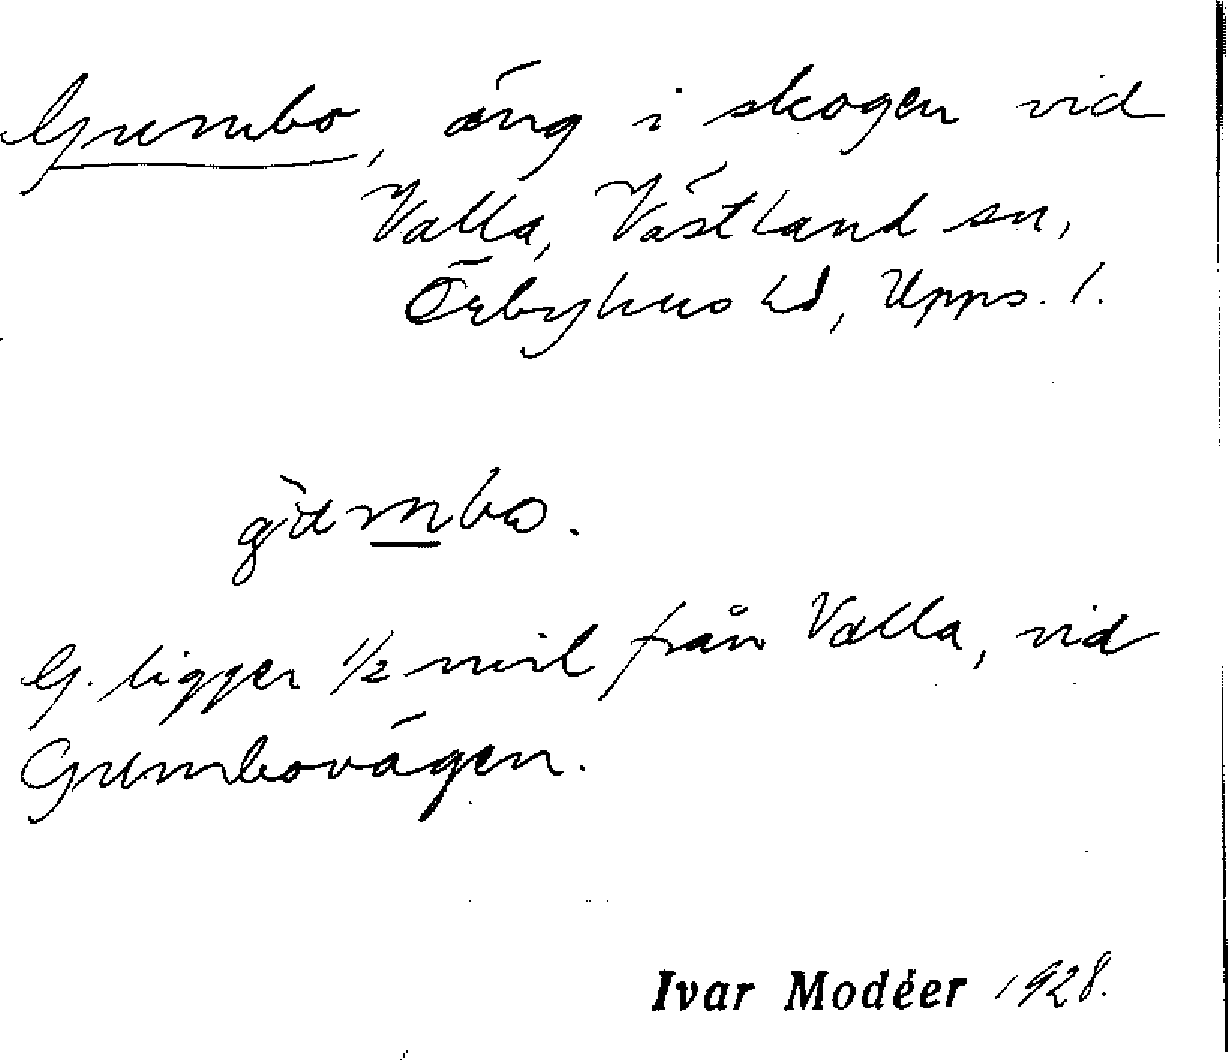 Gumbo, äng i skogen vid
Valla, Västland sn,
Örbyhus hd, Upps. l.
G. ligger 1/2 mil från Valla, vid
Gumbovägen.
Ivar Modéer 1928.